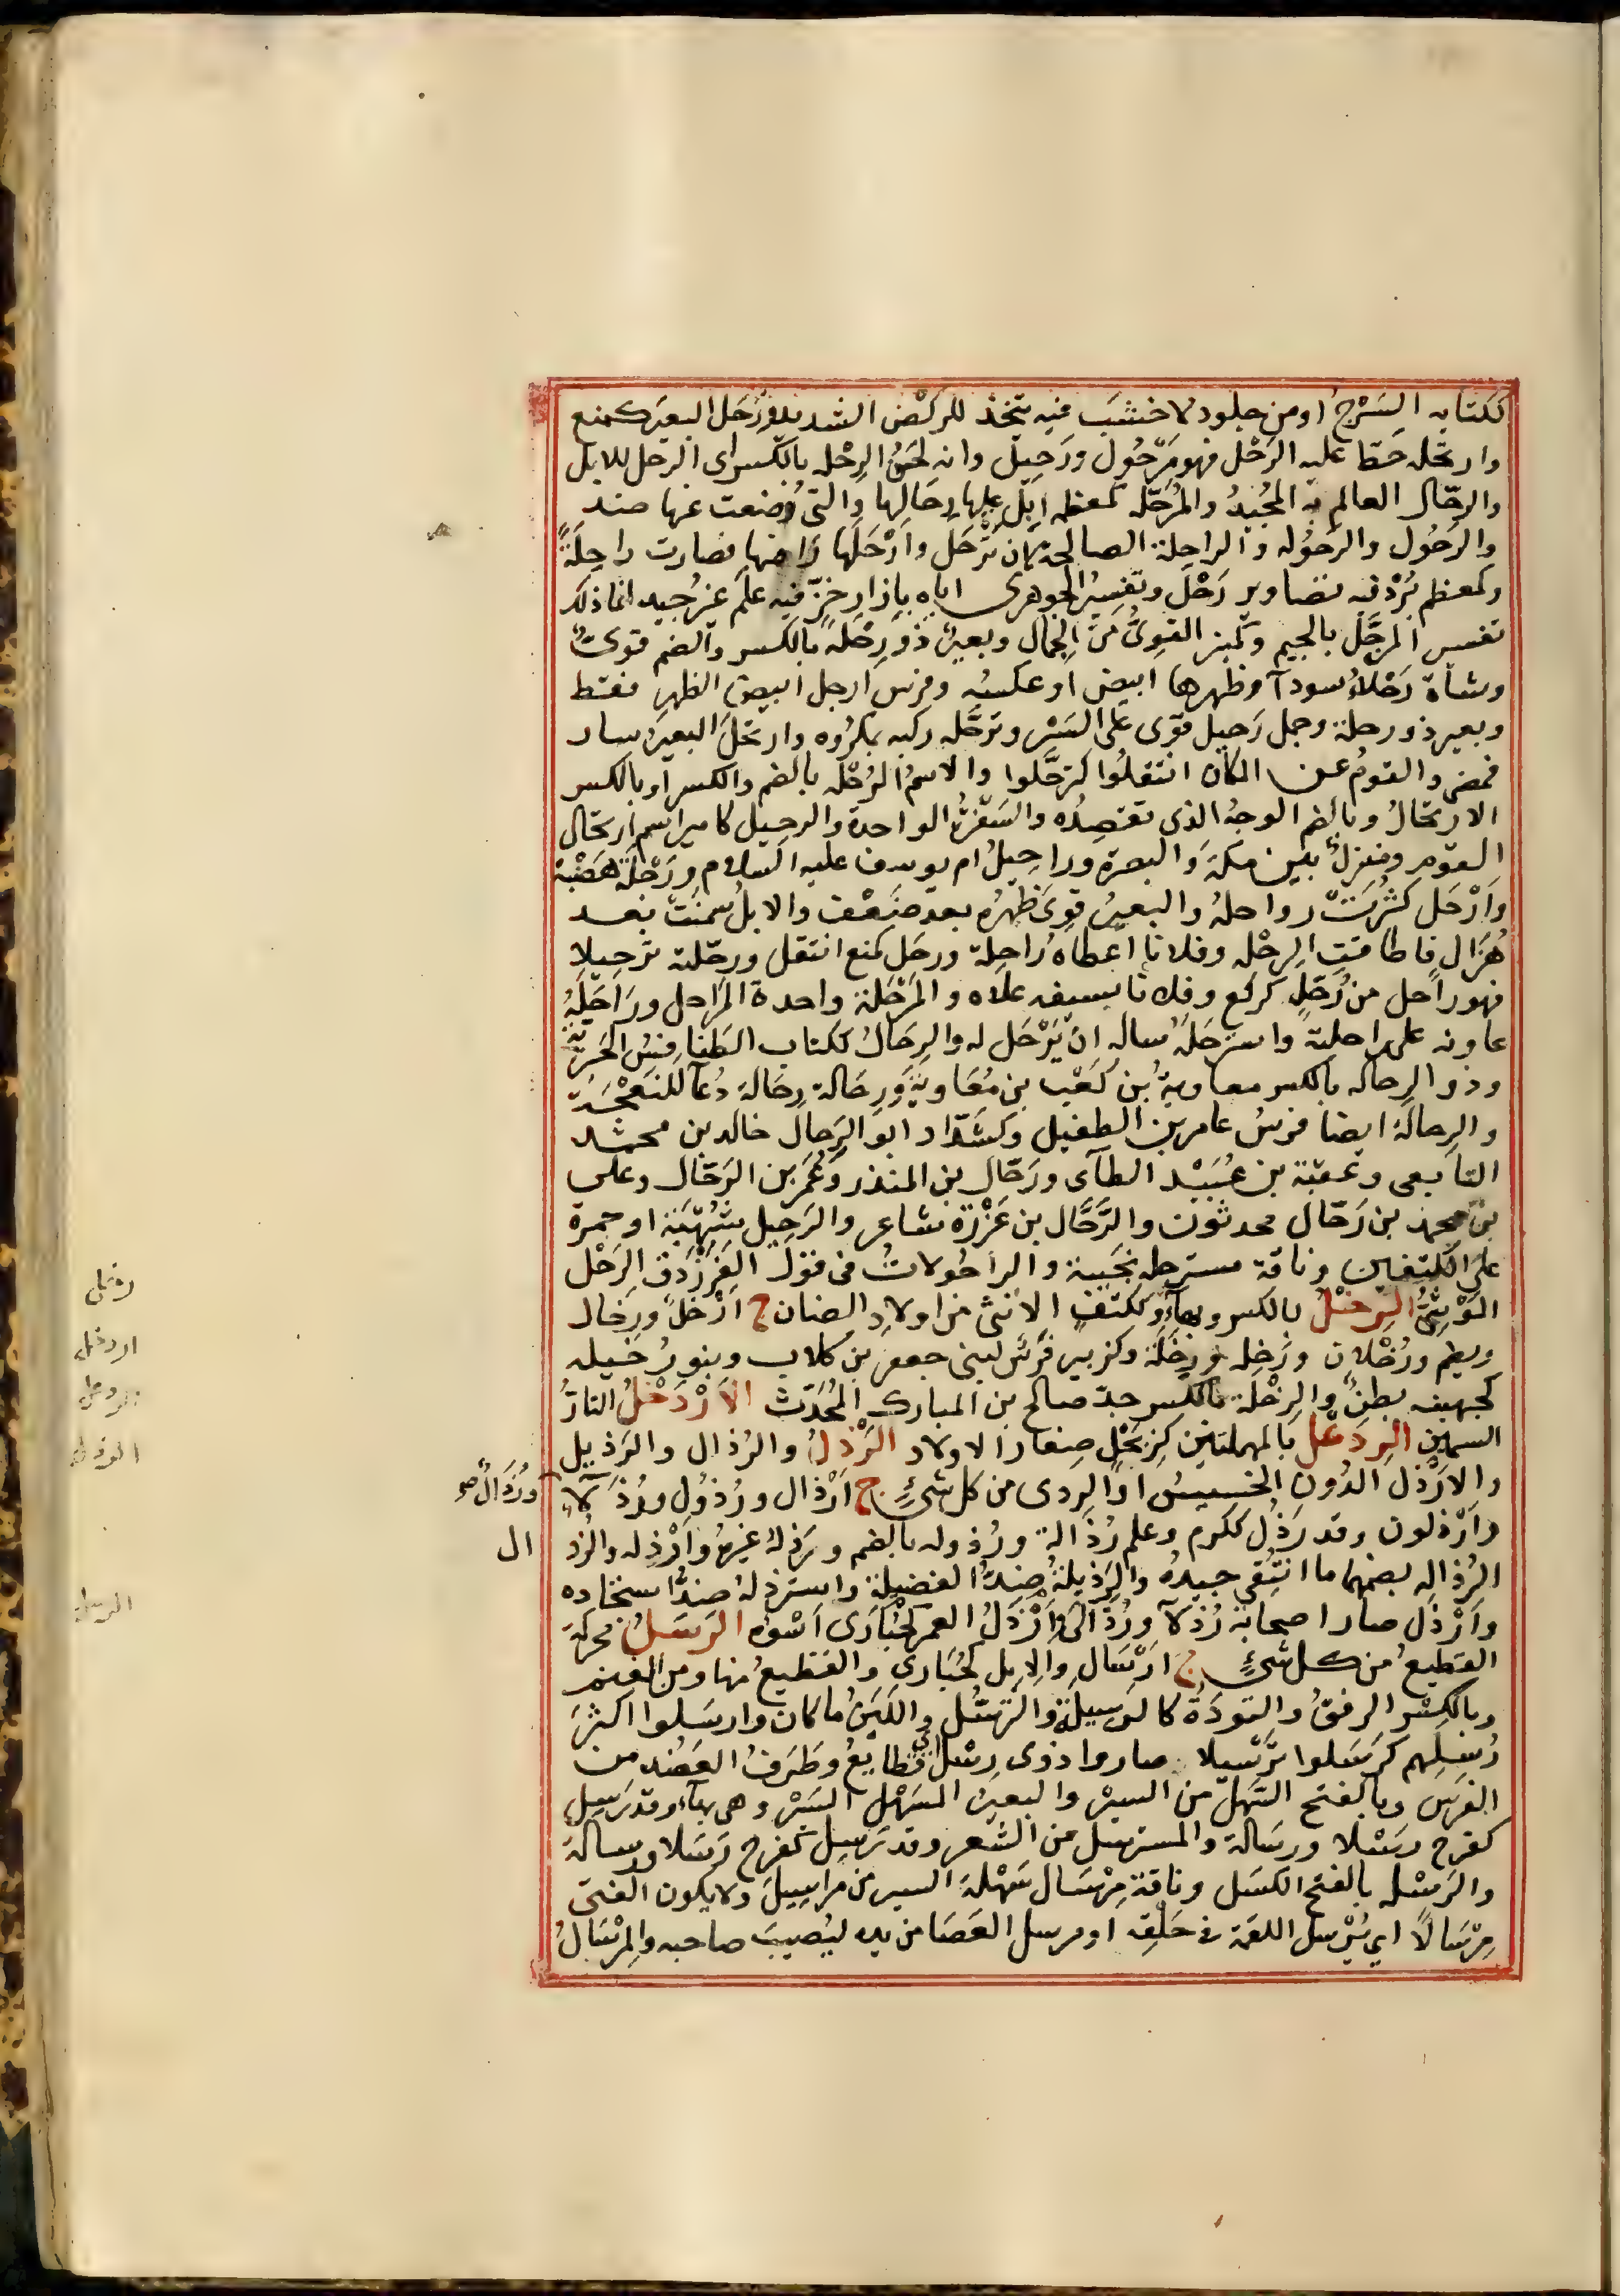 ككتابه السَرْجُ او من جلود لا خشَبَ فيه يتّخذ للركْض الشديد ورَحَل البعيرَ كمنع
وارتحله حَطّ عليه الرَحْل فهو مَرْحُول ورَحِيل وانه لحَسَنُ الرِحْله بالكسر اى الرحل للابل
والرحّال العالم به المُجيدُ والمُرَحّله كمعظمه اِبِل عليها رِحَالها والتى وُضعت عنها ضد
والرَحُول والرَحُوله والراحِلة الصالحة لان تُرْحَل وأرْحَلَها رَاضها فصارت راحِلَةً
وكمعظم بُرْد فيه تصاوير رَحْل وتفسيرُ الجوهرى اياه بازار خزّ فيه علَم غير جيد انما ذلك
تفسير المرَجَّل بالجيم وكمنبر القوىُّ من الجمال وبعيرٌ ذو رِحْلَة بالكسر والضم قوىٌّ
وشاة رَحْلاءُ سودآ وظهرها ابيض او عكسُه وفرس أرحل ابيض الظهرِ فقط
وبعير ذو رحلة وجمل رَحيل قوّى على السَيْر وترَحَّله ركبه بمكرُوه وارتحلَ البعيرُ سار
فمضى والقومُ عن المكان انتقلُوا كترَحَّلوا والاسمُ الرُحْله بالضم والكسر او بالكسر
الارتحالُ وبالضم الوجهُ الذى تقصِدُه والسَفْرَةُ الواحدة والرحيل كامير اسم ارتحال
القوم ومنزلٌ بين مكةَ والبصرة وراحِيلُ ام يوسف عليه السلام ورَحْلَة هَضْبَة
وَأرْحَل كثُرَتْ رواحلهُ والبعيرُ قوِىَ ظَهْرُه بعد ضَعْف والابلُ سَمنَتْ بعد
هُزَال فاطاقتِ الرِحْله وفلانا اعطاه رُاحِلة ورحَل كمنع انتقل ورحّلته ترحيلا
فهو راحل من رُحّلٍ كركّع وفلانا بسيفه علاه والمَرْحَلَة واحدة المَراحل ورَاحَلَهُ
عاونه على راحلته واسترحَلَهُ ساله ان يَرْحَل له والرِحَالُ ككتاب الطَنافِسُ الحَيريّة
وذو الرحاله بالكسر معاويةُ بن كعْب بن مُعَاويَة ورِحَالة رِحَالةَ دُعآ للنعْجَة
والرِحالة ايضا فرسُ عامر بن الطفيل وكشَدّاد ابو الرَحال خالد بن محمد
التابعى وعقبة بن عُبَيْد الطآى ورَحّال بن المنذر وعُمَر بن الرَحّال وعلى
بن محمد بن رَحّال محدثون والرَّحَّال بن عَزْرَة شاعر والرَحِيل شُهْبَة او حمرة
على الكتفين وناقة مسترحله نجيبة والراحُولاتُ فى قول الفَرَزْدَق الرَحْل
المَوْشِىُّ الرِخْلُ بالكسر وبهآء وككتف الانثى من اولادِ الضان ج أرْخُل ورِخال
ويضم ورُخْلان ورَخِله ورِخَلَة وكزبير فرَس لبنى جعفر بن كلاب وبنو رُخَيله
كجهينه بطنٌ والرِخْلَة بالكسر جدّ صالح بن المبارك المُحَدّث الاَرْدَخْلُ التارُّ
السمين الرِدَعْل بالمهملتين كزِبَحْلٍ صِغار الاولاد الرَّذْلُ والرُذال والرَذيل
والارْذَل الدُون الخسيسُ او الردى من كل شىءٍ ج أرْذال ورُذوُل ورُذَلآءُ ورُذَالٌ صح
وأرْذلون وقد رَذُل ككرم وعلم رُذَالة ورُذوله بالضم ورَذلهُ غيرهُ وأرْذله والرُذ ال
الرُذاله بضمهما ما انتُقى جيدهُ والرَذيلةُ ضِدُّ الفضيلة واسترذلهُ ضدُّ استجاده
وأرْذَل صار اصحابهُ رُذلآ ورُذَالَى وأرْذَلُ العمر كحُبَارَى اَسْوَءه الرَسَلُ محركة
القَطيعُ من كل شىءٍ ج أرْسَال والابل كحُبَارى والقطيعُ منها ومن الغنم
وبالكسْرِ الرفقُ والتوَدَةُ كالرسيلةِ والتَرسُّل واللَبَنُ ما كان وارسَلوا اكثرَ
رُسلهم كرَسّلوا ترْسيلا صاروا ذوى رِسْل اى قطايعُ وطَرَفُ العَضُد من
الفَرَس وبالفتح السَهلُ من السير والبعيرُ السَهْل السَيْر وهى بهآء وقد رَسِلَ
كفرح رسَلا ورسَالة والمسترسل من الشعر وقد رَسِلَ كفرح رَسَلا ورسالة
والرَسْله بالفتح الكسَل وناقة مِرْسَال سَهْلة السير من مراسِيلَ ولا يكون الفتى
مِرْسَالًا اى يُرْسل اللقمة فى حَلْقِه او مرسل العَصَا من يده ليُصيبَ صاحبه والمِرْسَالُ